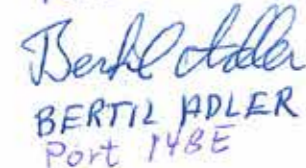 Bertil Adler
BERTIL ADLER
Port 148E